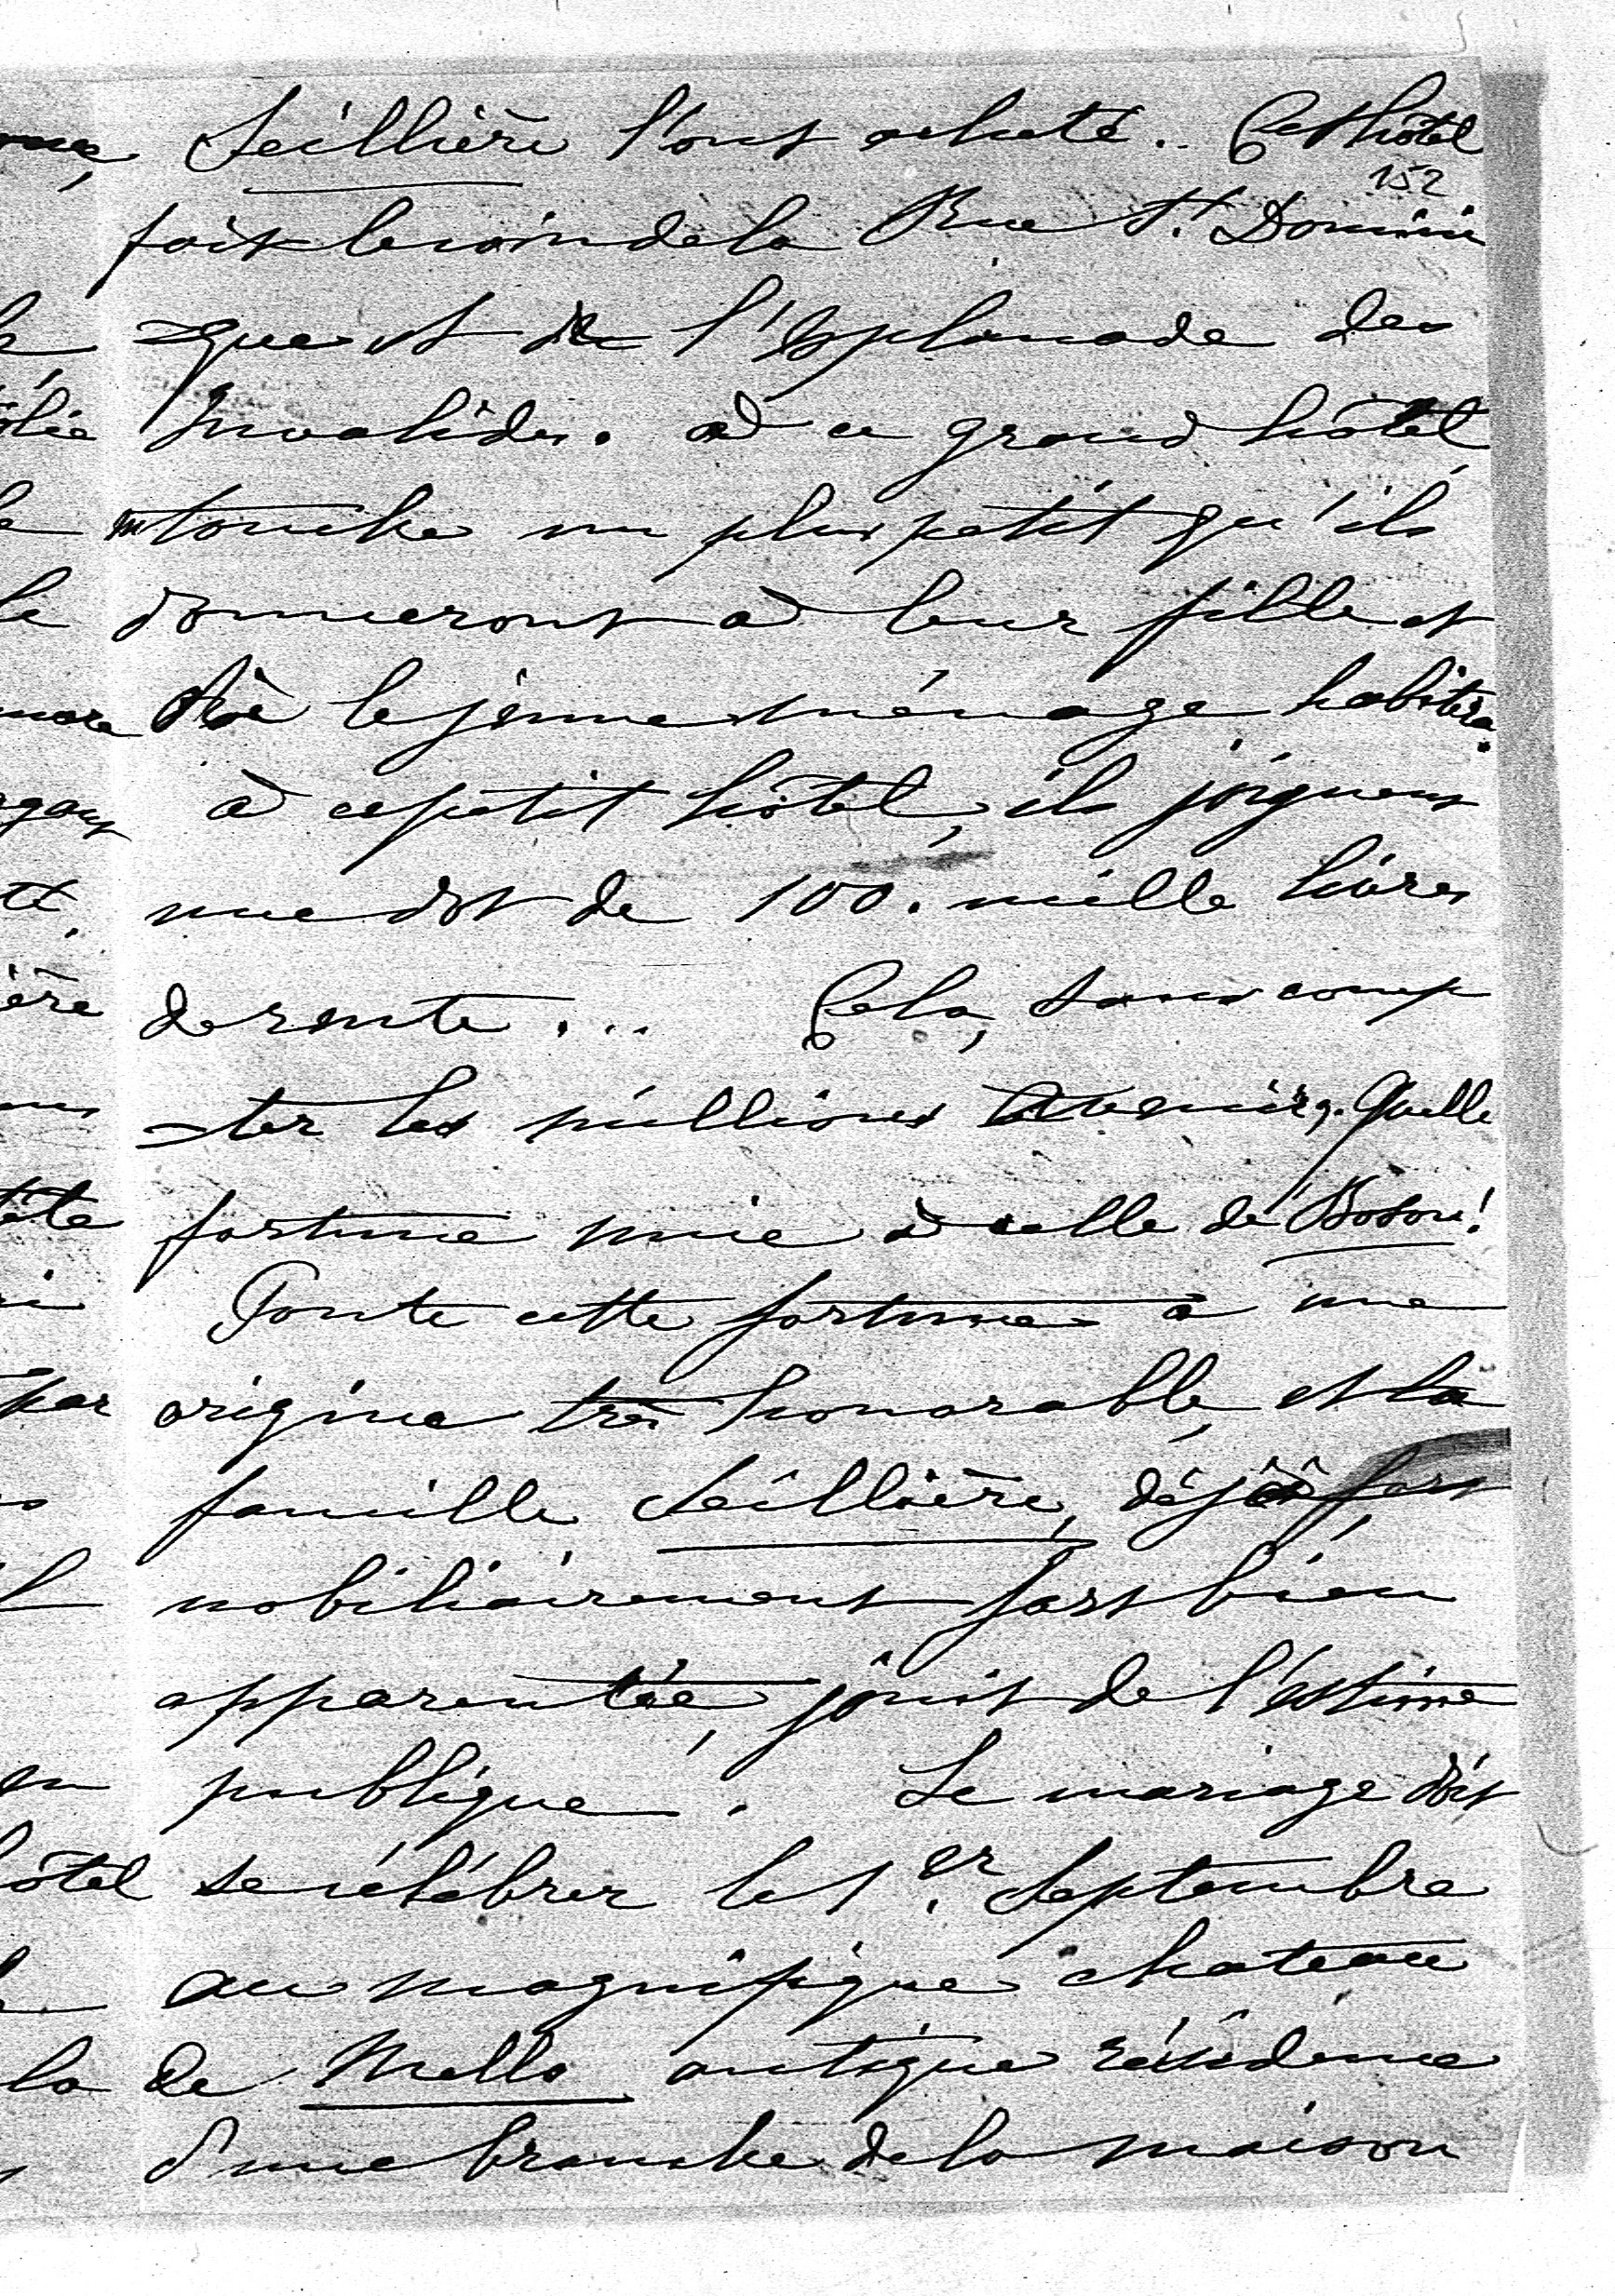 Seillière l'ont acheté.. Cet hôtel
152
fait le coin de la Rue St. Domini
=que et de l'Esplanade des
Invalides. à ce grand hôtel,
touche un plus petit qu'ils
donneront à leur fille et
où le jeune ménage habitera.
à ce petit hôtel, ils joignent
une dot de 100. mille livres
de rente ... Cela, sans comp
=ter les millions à venir. Quelle
fortune unie à celle de Boson!
Toute cette fortune a une
origine très honorable, et la
famille Seillière, déjà fort
nobiliairement fort bien
apparentée, jouit de l'estime
publique. Le mariage doit
se célébrer le 1.er Septembre
au magnifique chateau
de Mello antique résidence
d'une branche de la maison